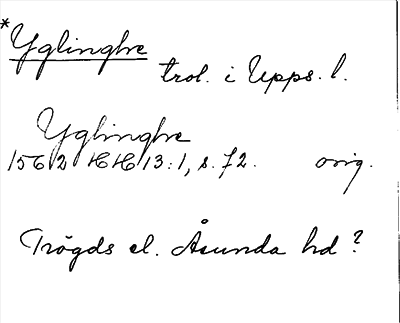 *Yglinghe
trol. i Upps. l.
Yglinghe
1562 HH 13:1, s. 72. orig.
Trögds el. Åsunda hd ?